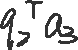 q₂ᵀa₃